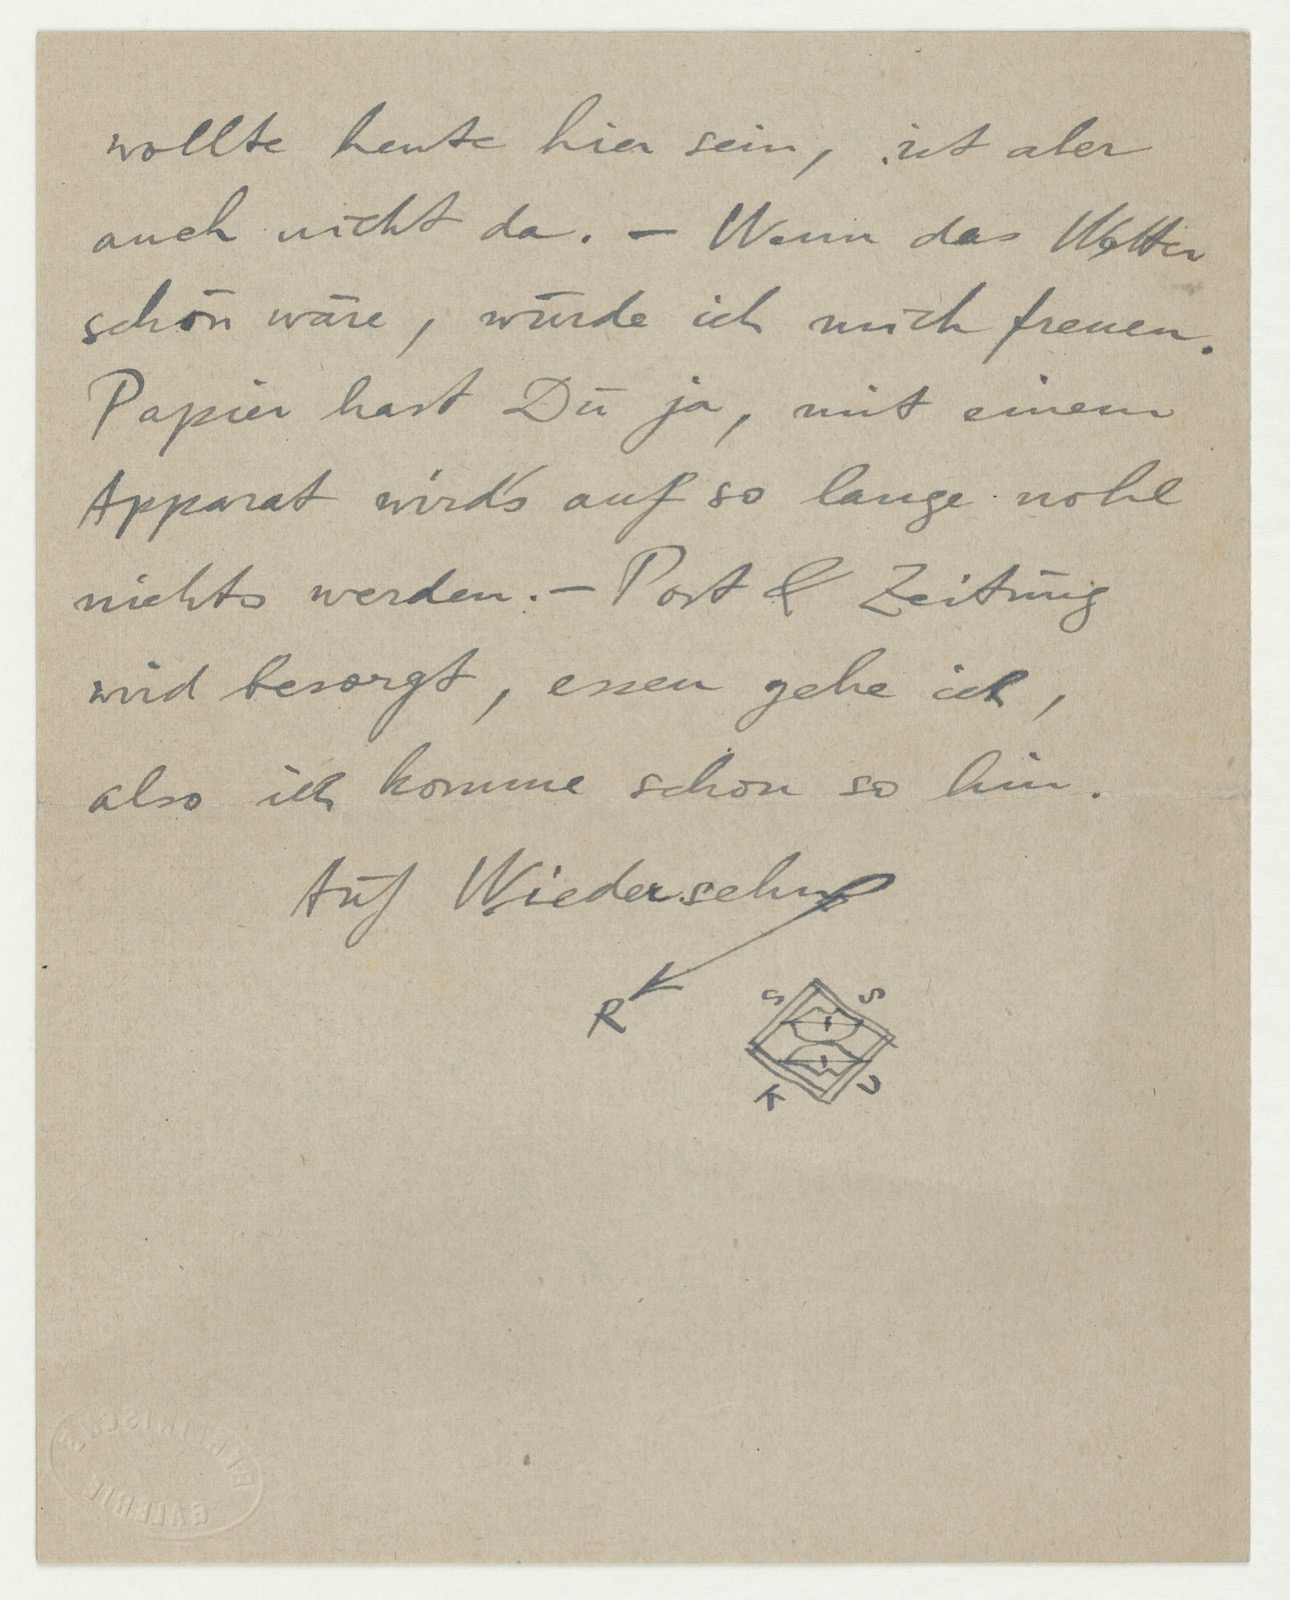 wollte heute hier sein, ist aber
auch nicht da. – Wenn das Wetter
schön wäre, würde ich mich freuen.
Papier hast Du ja, mit einem
Apparat wird's auf so lange wohl
nichts werden. – Post & Zeitung
wird besorgt, essen gehe ich,
also ich komme schon so hin.
Auf Wiedersehn
R
BERLINISCHE
GALERIE